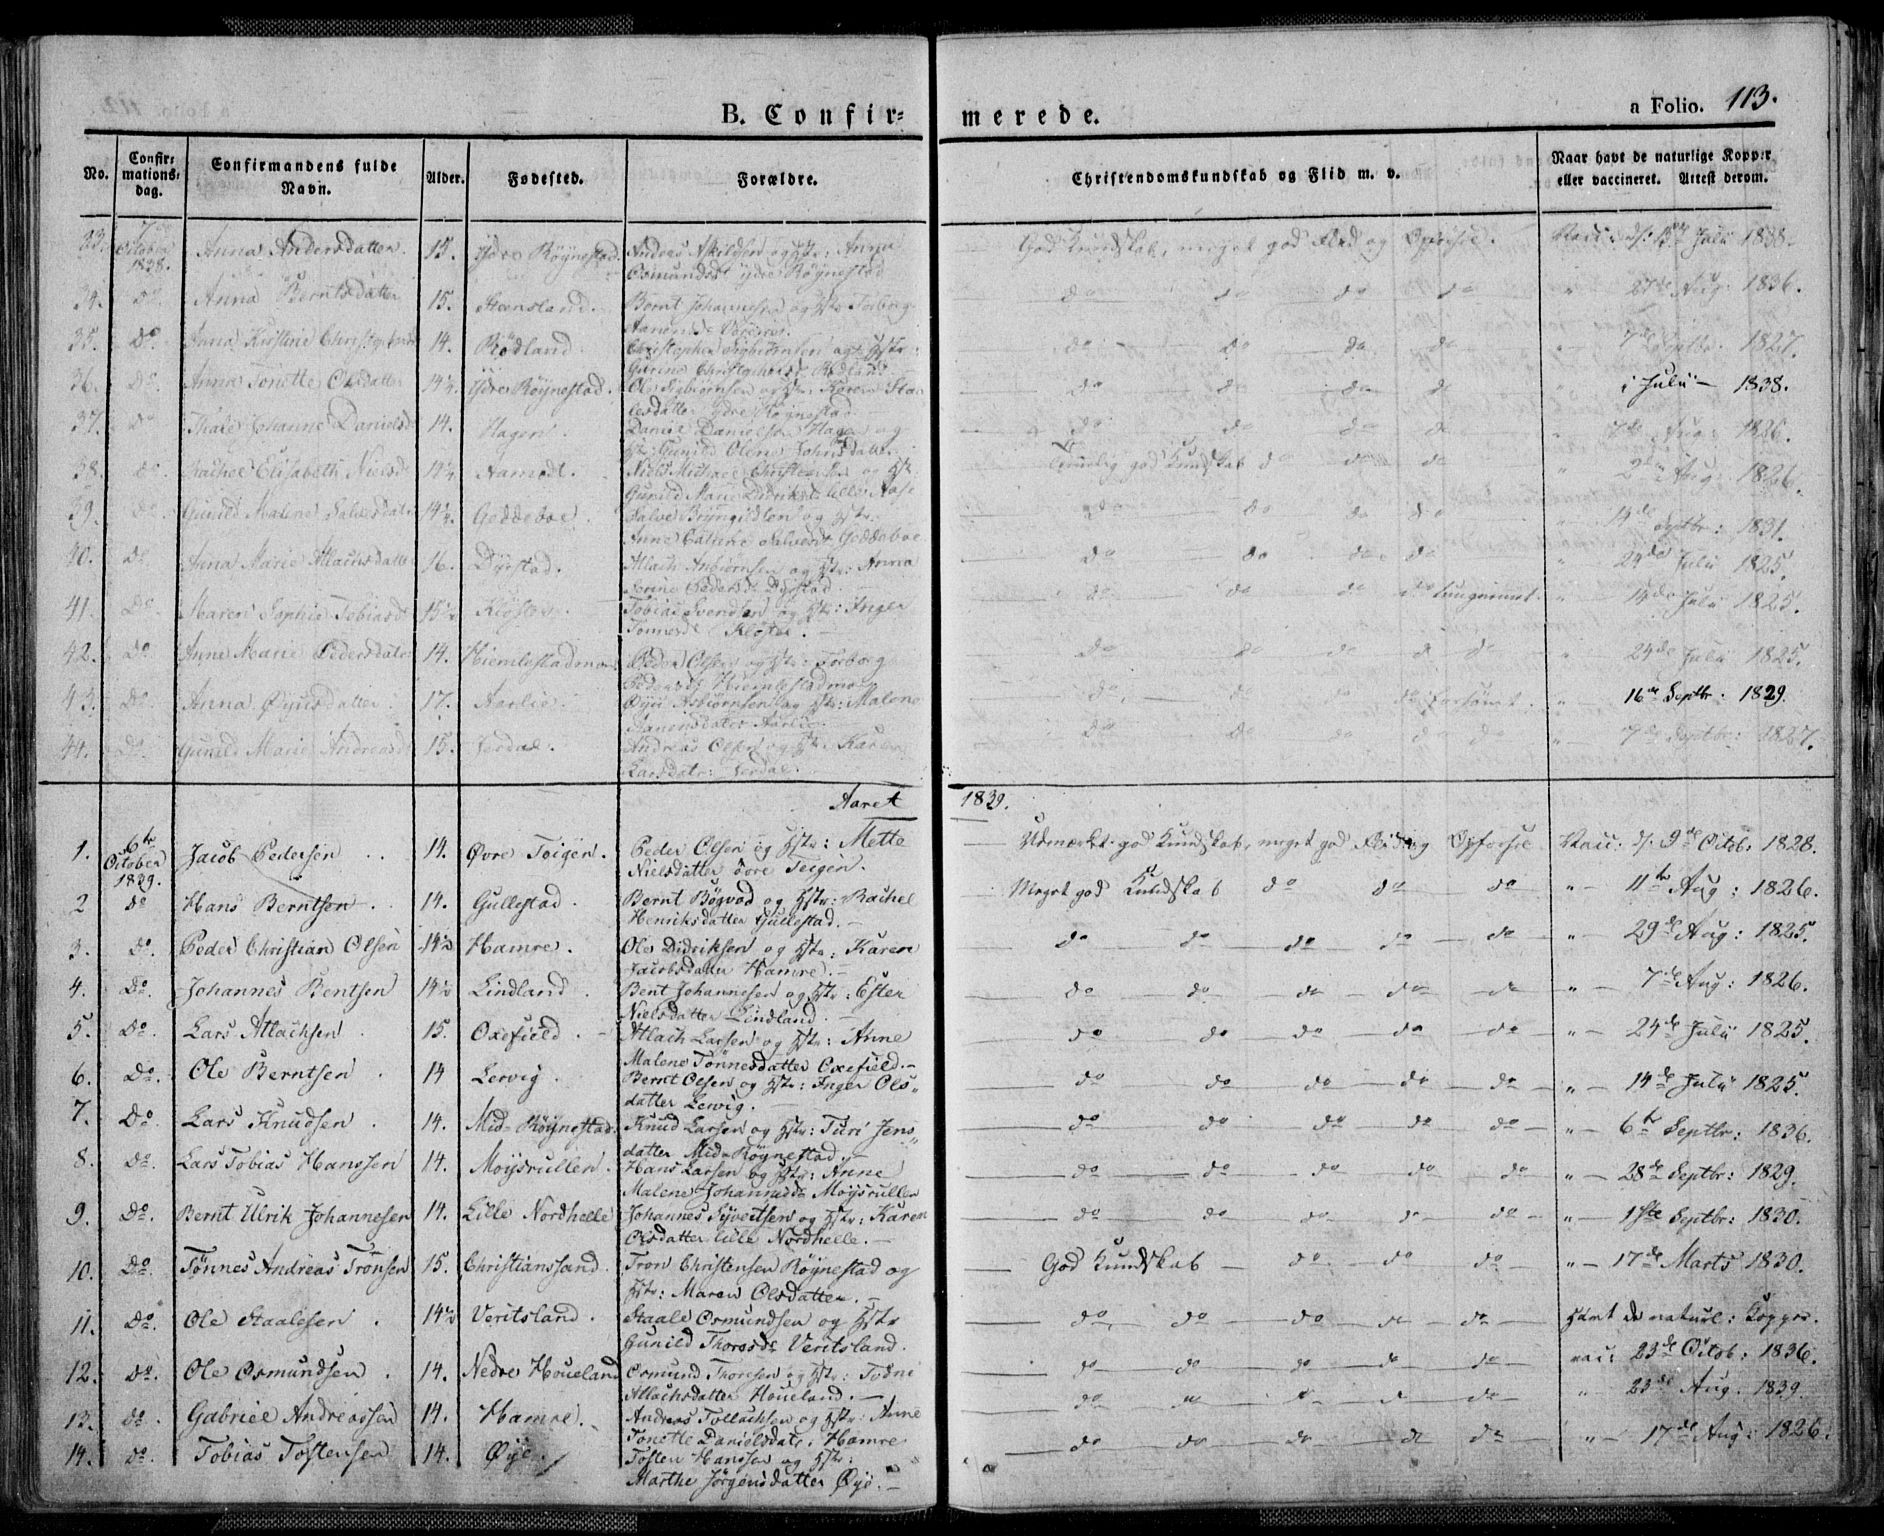 B. Confir= merede.
a Folio. 113.
No. Confir= mations= dag. Confirmandens fulde Navn. Alder. Fødested. Forældre. Christendomskundskab og Flid m. v. Naar havt de naturlige Kopper eller vaccineret. Attest derom.
33. October 1838. Anna Andersdatter. 15. Ydre Røynestad. Andreas Askildsen og Hstr: Anna God Kundskab, meget god Flid og Opførsel. Vacc. Juli 1838.
Osmundsd ydre Røynestad
34. do Anna Berntsdatter 15. Steensland. Bernt Johannesen og Hstr Torborg do do do do " 27de Aug: 1836.
35. Do. Anna Kirstine 14. Rødland. Christopher Sigbiørnsen og Hstr: do do do do " 7de Septbr. 1827.
36. Do. Anna Tonette Olsdatter 14½. Ydre Røynestad. Ole Sigbiørnsen og Hstr: Karen Staa= do do do do i Juli — 1838.
lesdatter ydre Røynestad
37. do Thale Johanne Danielsd 14. Hagen. Daniel Danielsen Hagen og do do do do 7de Aug: 1826.
Hstr: Gunild Olene Johnsdatter.
38. do. Rachel Elisabeth Nielsd 14½ Aamodt. Niels Michael og Hstr god Kundskab do do do 2den Aug: 1826.
Gunild Marie Didriksd lille Aase
39. do. Gunild Malene Salvesdatr 14½. Geddeboe. Salve Bryngildsen og Hstr: do do do do 14de Septbr: 1831.
Anne Catrine Salvesd Geddeboe
40. do Anna Marie Atlachsdatter 16. Dyrstad. Atlach Asbiørnsen og Hstr: Anna do do do do 24de Juli 1825.
Pedersd: Dyrstad.
41. Do. Maren Sophie Tobiasd 15½ Kloster. Tobias Svendsen og Hstr: Inger do do do do 14de Juli 1825.
Tønnesd Kloster. —
42. Do Anne Marie Pedersdatr 14. Hiemlestadmoen Peder Olsen og Hstr: Torborg do do do do do 24de Juli 1825.
Pedersd Hiemlestadmoen
43. Do. Anna Øyusdatter. 17. Aarlie. Øyu Asbiørnsen og Hstr: Malene do. — do do do forsømt. " 16de Septbr. 1829.
Aanensdatter Aarlie. —
44. Do. Gunild Marie Andreasd 15. Jerdal. Andreas Olsen og Hstr: Karen do do do do do " 7de Septbr: 1827.
Larsdatr: Jerdal.
Aaret 1839.
1. 6te October 1839. Jacob Pedersen 14. Øvre Teigen. Peder Olsen og Hstr: Mette Udmærket god Kundskab, meget god Flid og Opførsel Vacc: d. 9de Octob: 1828.
Nielsdatter övre Teigen.
2 do Hans Berntsen. 14. Gullestad. Bernt Bøgvad og Hstr: Rachel Meget god Kundskab do do do "— 11te Aug: 1826.
Henriksdatter Gullestad. —
3. Do. Peder Christian Olsen 14½ Hamre. Ole Didriksen og Hstr: Karen do do do do do "— 29de Aug: 1825.
Jacobsdatter Hamre. —
4. Do. Johannes Bentsen 14½ Lindland. Bent Johannesen og Hstr: Ester do do do do do "— 7de Aug: 1826.
Nielsdatter Lindland. —
5. Do. Lars Atlachsen 15. Oxefield. — Atlach Larsen og Hstr: Anne do do do do do "— 24de Juli 1825.
Malene Tønnesdatter Oxefield. —
6. Do. Ole Berntsen 14 Lervig. Bernt Olsen og Hstr: Inger Ols= do do do do do "— 14de Juli 1825.
datter Lervig. —
7. Do Lars Knudsen. 14. Mid=Røynestad. Knud Larsen og Hstr: Turi Jens= do do do do do "— 6te Septbr: 1836.
datter Mid=Røynestad. —
8. do. Lars Tobias Hanssen 14. Moysrullen. Hans Larsen og Hstr: Anne do do do do do "— 28de Septbr: 1829.
Malene Johannesd Moysrullen
9. Do. Bernt Ulrik Johannesen 14. Lille Nordhelle Johannes Syvertsen og Hstr: Karen do do do do do "— 1ste Septbr: 1830.
Olsdatter lille Nordhelle. —
10. Do. Tønnes Andreas Tronsen 15. Christianssand. Tron Christensen Røynestad og God Kundskab — do do do "— 17de Marts 1830.
Hstr: Maren Olsdatter. —
11. Do. Ole Staalesen. 14½ Veritsland. Staale Osmundsen og Hstr do do do do do havt de naturl: Kopper.
Gunild Thorosdr Veritsland.
12. do. Ole Osmundsen. 14. Nedre Houeland Osmund Thoresen og Hstr: Todne do do do do do vacc: 23de Octob: 1836.
Atlachsdatter Houeland. —
13. do. Gabriel Andreassen 14. Hamre. Andreas Tollachsen og Hstr: Anne do do do " 23de Aug. 1839.
Tonette Danielsdatr. Hamre
14. do. Tobias Tostensen 14. Øye. Tosten Hanssen og Hstr: do do do do do "— 17de Aug: 1826.
Marthe Jørgensdatter Øye. —